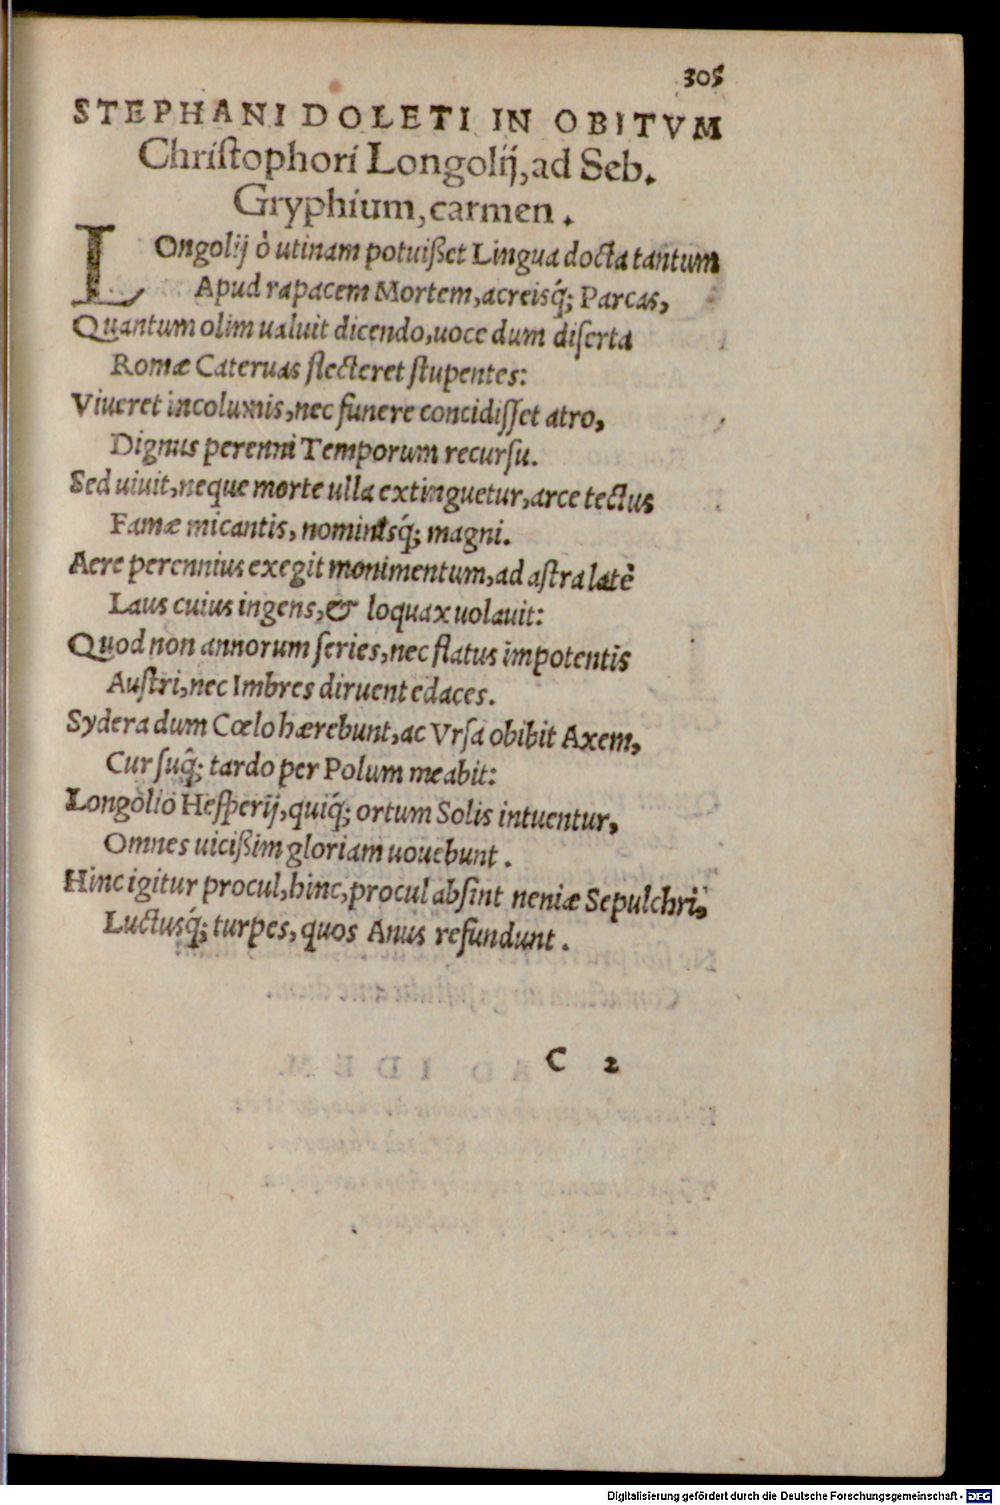 305
STEPHANI DOLETI IN OBITVM
Chriſtophori Longolij, ad Seb.
Gryphium, carmen.
LOngolij ò utinam potuißet Lingua docta tantum
Apud rapacem Mortem, acreisq́; Parcas,
Quantum olim ualuit dicendo, uoce dum diſerta
Romæ Cateruas flecteret ſtupentes:
Viueret incolumis, nec funere concidiſſet atro,
Dignus perenni Temporum recurſu.
Sed uiuit, neque morte ulla extinguetur, arce tectus
Famæ micantis, nominisq́; magni.
Aere perennius exegit monimentum, ad aſtra latè
Laus cuius ingens, & loquax uolauit:
Quod non annorum ſeries, nec flatus impotentis
Auſtri, nec Imbres diruent edaces.
Sydera dum Cœlo hærebunt, ac Vrſa obibit Axem,
Curſuq́; tardo per Polum meabit:
Longolio Heſperij, quiq́; ortum Solis intuentur,
Omnes uicißim gloriam uouebunt.
Hinc igitur procul, hinc, procul abſint neniæ Sepulchri,
Luctusq́; turpes, quos Anus refundunt.
C 2
Digitalisierung gefördert durch die Deutsche Forschungsgemeinschaft - DFG